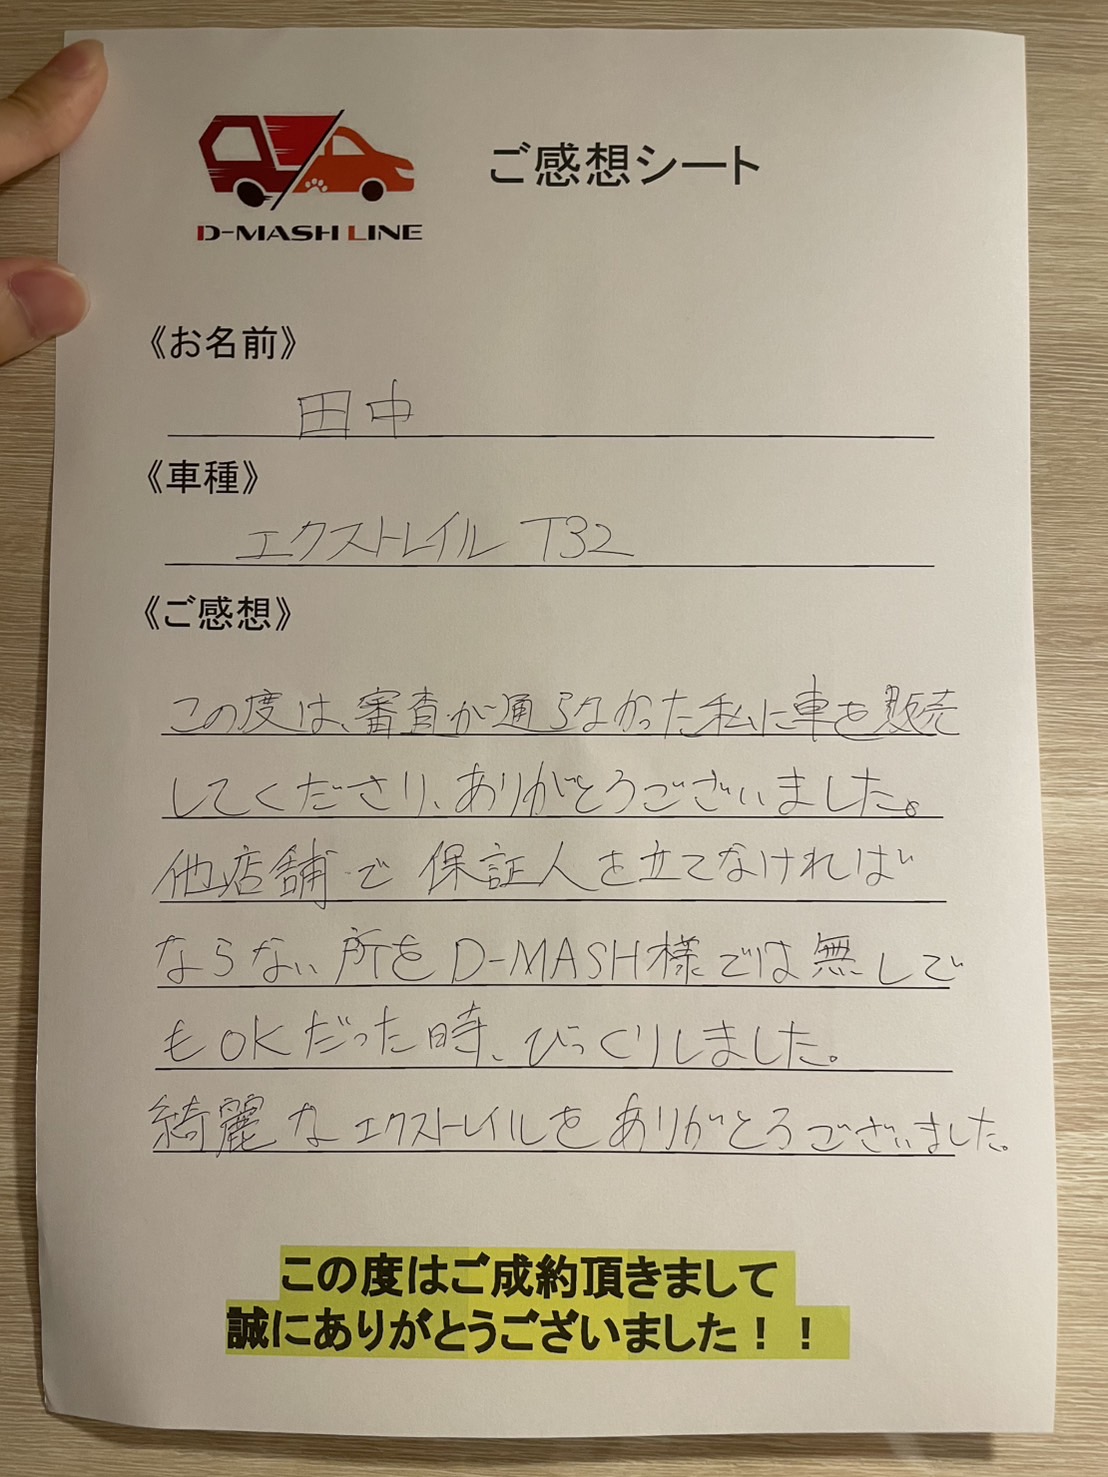 D-MASH LINE
ご感想シート
《お名前》
田中
《車種》
エクストレイル T32
《ご感想》
この度は、審査が通らなかった私に車を販売
してくださり、ありがとうございました。
他店舗で保証人を立てなければ
ならない所をD-MASH様では無しで
もOKだった時、びっくりしました。
綺麗なエクストレイルをありがとうございました。
この度はご成約頂きまして
誠にありがとうございました！！